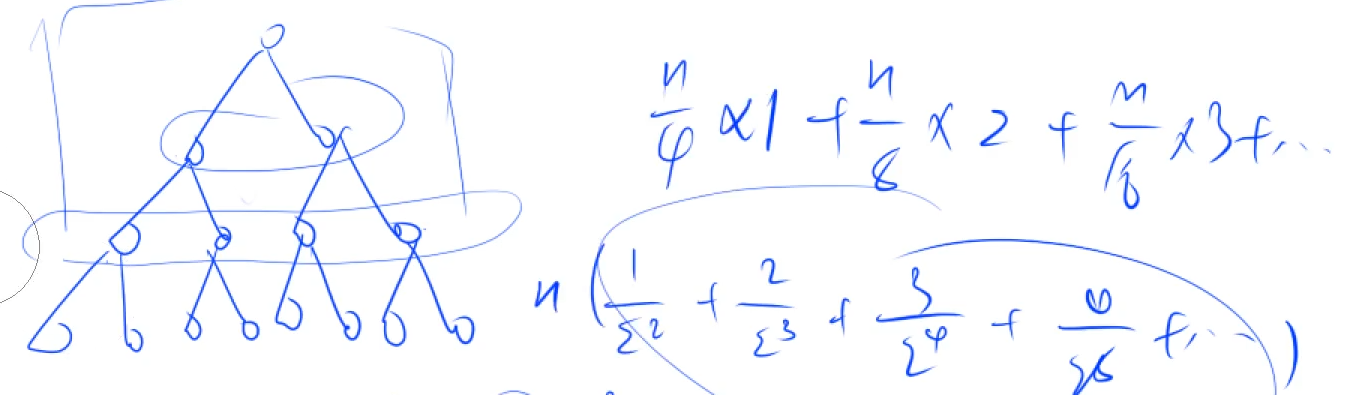 n/4 × 1 + n/8 × 2 + n/16 × 3 + ...
n ( 1/2² + 2/2³ + 3/2⁴ + 4/2⁵ + ... )